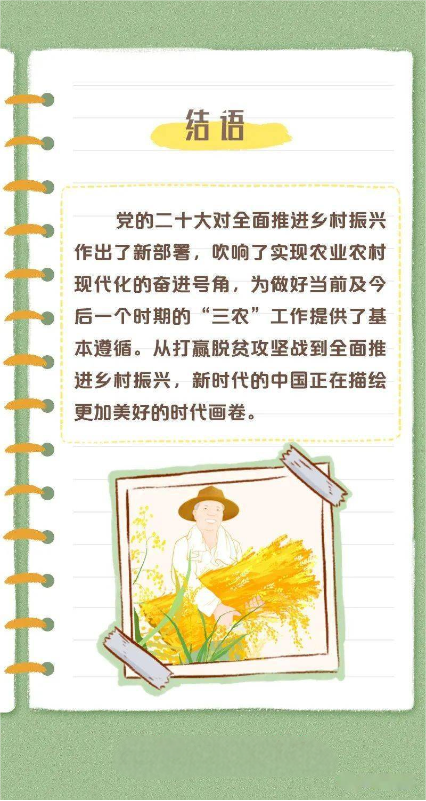 结语
党的二十大对全面推进乡村振兴
作出了新部署，吹响了实现农业农村
现代化的奋进号角，为做好当前及今
后一个时期的“三农”工作提供了基
本遵循。从打赢脱贫攻坚战到全面推
进乡村振兴，新时代的中国正在描绘
更加美好的时代画卷。